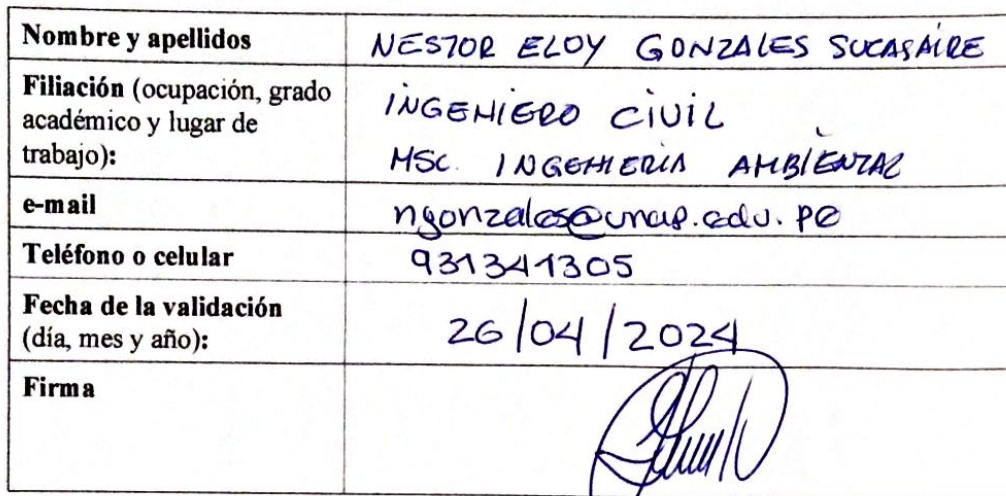 Nombre y apellidos
NESTOR ELOY GONZALES SUCASAIRE
Filiación (ocupación, grado
académico y lugar de
trabajo):
INGENIERO CIVIL
MSC. INGENIERIA AMBIENTAL
e-mail
ngonzales@unap.edu.pe
Teléfono o celular
931341305
Fecha de la validación
(día, mes y año):
26/04/2024
Firma